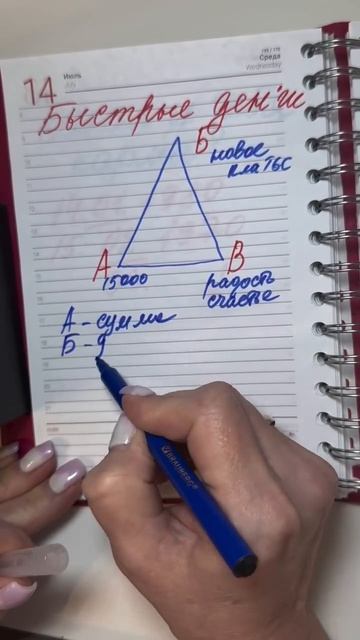 14
Июль
July
Среда
Wednesday
Быстрые деньги
Б
новое
платье
А
В
15000
радость
счастье
А - сумма
Б - д
BRAUBERG